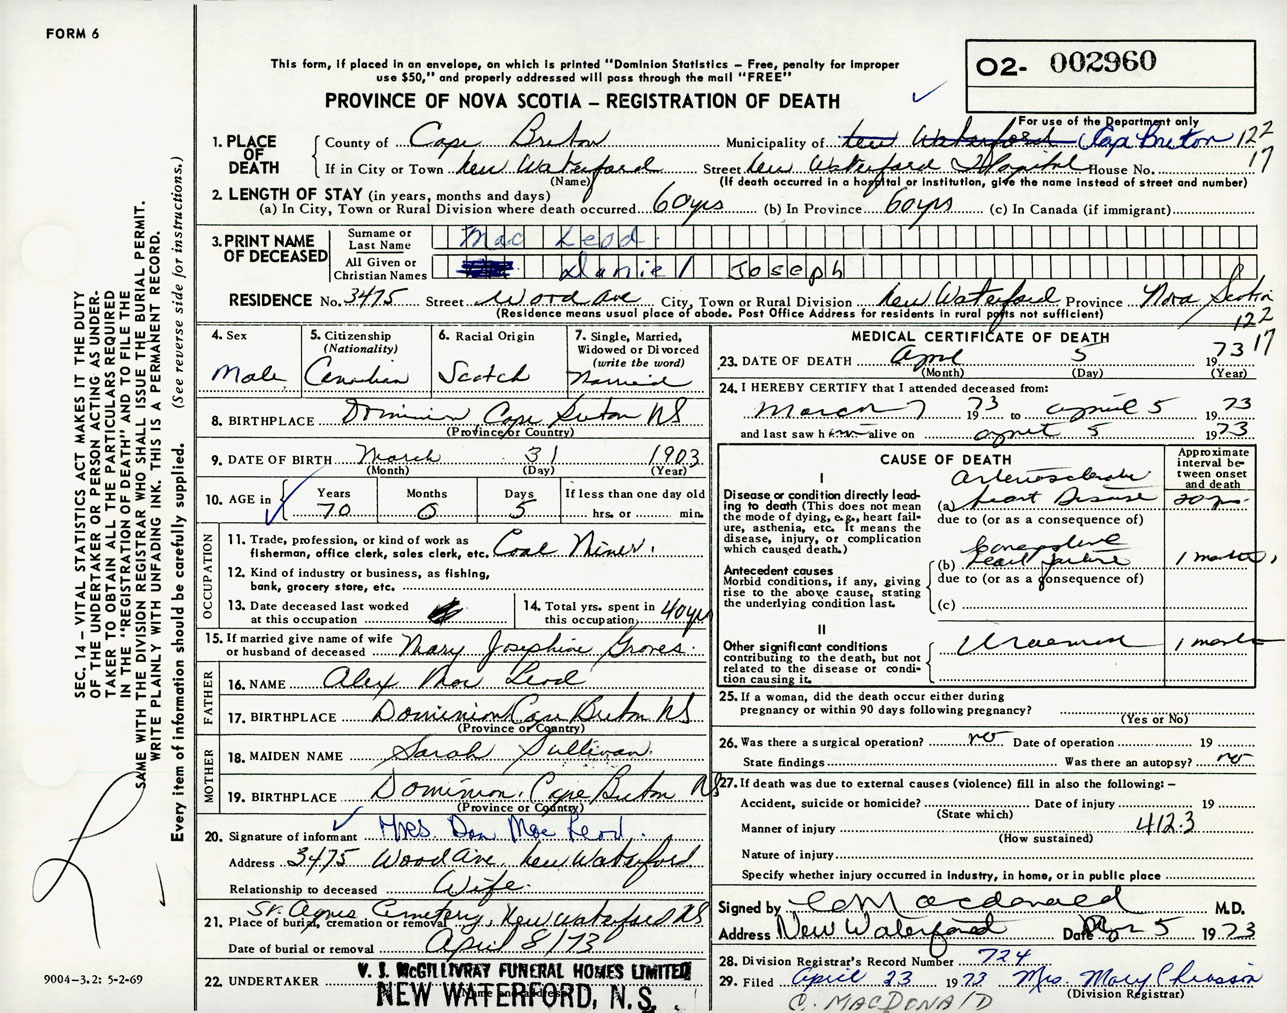 FORM 6
This form, if placed in an envelope, on which is printed "Dominion Statistics – Free, penalty for improper
use $50," and properly addressed will pass through the mail "FREE"
O2- 002960
PROVINCE OF NOVA SCOTIA – REGISTRATION OF DEATH
For use of the Department only
1. PLACE OF DEATH
County of Cape Breton Municipality of New Waterford Cape Breton 122
If in City or Town New Waterford Street New Waterford Hospital House No. 17
(Name) (If death occurred in a hospital or institution, give the name instead of street and number)
2. LENGTH OF STAY (in years, months and days)
(a) In City, Town or Rural Division where death occurred 60 yrs (b) In Province 60 yrs (c) In Canada (if immigrant)
3. PRINT NAME OF DECEASED
Surname or Last Name Mac Leod
All Given or Christian Names Daniel Joseph
RESIDENCE No. 3475 Street Wood Ave City, Town or Rural Division New Waterford Province Nova Scotia
(Residence means usual place of abode. Post Office Address for residents in rural parts not sufficient)
122
17
4. Sex Male
5. Citizenship (Nationality) Canadian
6. Racial Origin Scotch
7. Single, Married, Widowed or Divorced (write the word) Married
8. BIRTHPLACE Dominion Cape Breton NS
(Province or Country)
9. DATE OF BIRTH March 31 1903
(Month) (Day) (Year)
10. AGE in Years 70 Months 0 Days 5 If less than one day old
hrs. or min.
OCCUPATION
11. Trade, profession, or kind of work as
fisherman, office clerk, sales clerk, etc. Coal Miner.
12. Kind of industry or business, as fishing,
bank, grocery store, etc.
13. Date deceased last worked
at this occupation
14. Total yrs. spent in
this occupation 40 yrs
15. If married give name of wife
or husband of deceased Mary Josephine Groves.
FATHER
16. NAME Alex Mac Leod
17. BIRTHPLACE Dominion Cape Breton NS
(Province or Country)
MOTHER
18. MAIDEN NAME Sarah Sullivan.
19. BIRTHPLACE Dominion, Cape Breton NS
(Province or Country)
20. Signature of informant Mrs Dan Mac Leod.
Address 3475 Wood Ave, New Waterford
Relationship to deceased Wife.
21. Place of burial, cremation or removal St. Agnes Cemetery, New Waterford NS
Date of burial or removal April 8/73
22. UNDERTAKER V. J. McGILLIVRAY FUNERAL HOMES LIMITED
NEW WATERFORD, N.S.
MEDICAL CERTIFICATE OF DEATH
23. DATE OF DEATH April 5 1973
(Month) (Day) (Year)
24. I HEREBY CERTIFY that I attended deceased from:
March 7 1973 to April 5 1973
and last saw him alive on April 5 1973
CAUSE OF DEATH
Approximate interval between onset and death
I
Disease or condition directly leading to death (This does not mean
the mode of dying, e.g., heart failure, asthenia, etc. It means the
disease, injury, or complication
which caused death.)
(a) Arteriosclerotic Heart Disease 20 yrs.
due to (or as a consequence of)
Antecedent causes
Morbid conditions, if any, giving
rise to the above cause, stating
the underlying condition last.
(b) Congestive heart failure 1 month
due to (or as a consequence of)
(c)
II
Other significant conditions
contributing to the death, but not
related to the disease or condition causing it.
Uraemia 1 month
25. If a woman, did the death occur either during
pregnancy or within 90 days following pregnancy?
(Yes or No)
26. Was there a surgical operation? no Date of operation 19
State findings Was there an autopsy? no
27. If death was due to external causes (violence) fill in also the following: –
Accident, suicide or homicide? Date of injury 19
(State which)
Manner of injury 412.3
(How sustained)
Nature of injury
Specify whether injury occurred in industry, in home, or in public place
Signed by C Macdonald M.D.
Address New Waterford Date Apr 5 1973
28. Division Registrar's Record Number 724
29. Filed April 23 1973 Mrs. Mary Chiasson
(Division Registrar)
C. MACDONALD
SEC. 14 – VITAL STATISTICS ACT MAKES IT THE DUTY
OF THE UNDERTAKER OR PERSON ACTING AS UNDERTAKER
TO OBTAIN ALL THE PARTICULARS REQUIRED
IN THE "REGISTRATION OF DEATH" AND TO FILE THE
SAME WITH THE DIVISION REGISTRAR WHO SHALL ISSUE THE BURIAL PERMIT.
WRITE PLAINLY WITH UNFADING INK. THIS IS A PERMANENT RECORD.
Every item of information should be carefully supplied. (See reverse side for instructions.)
9004–3.2: 5-2-69